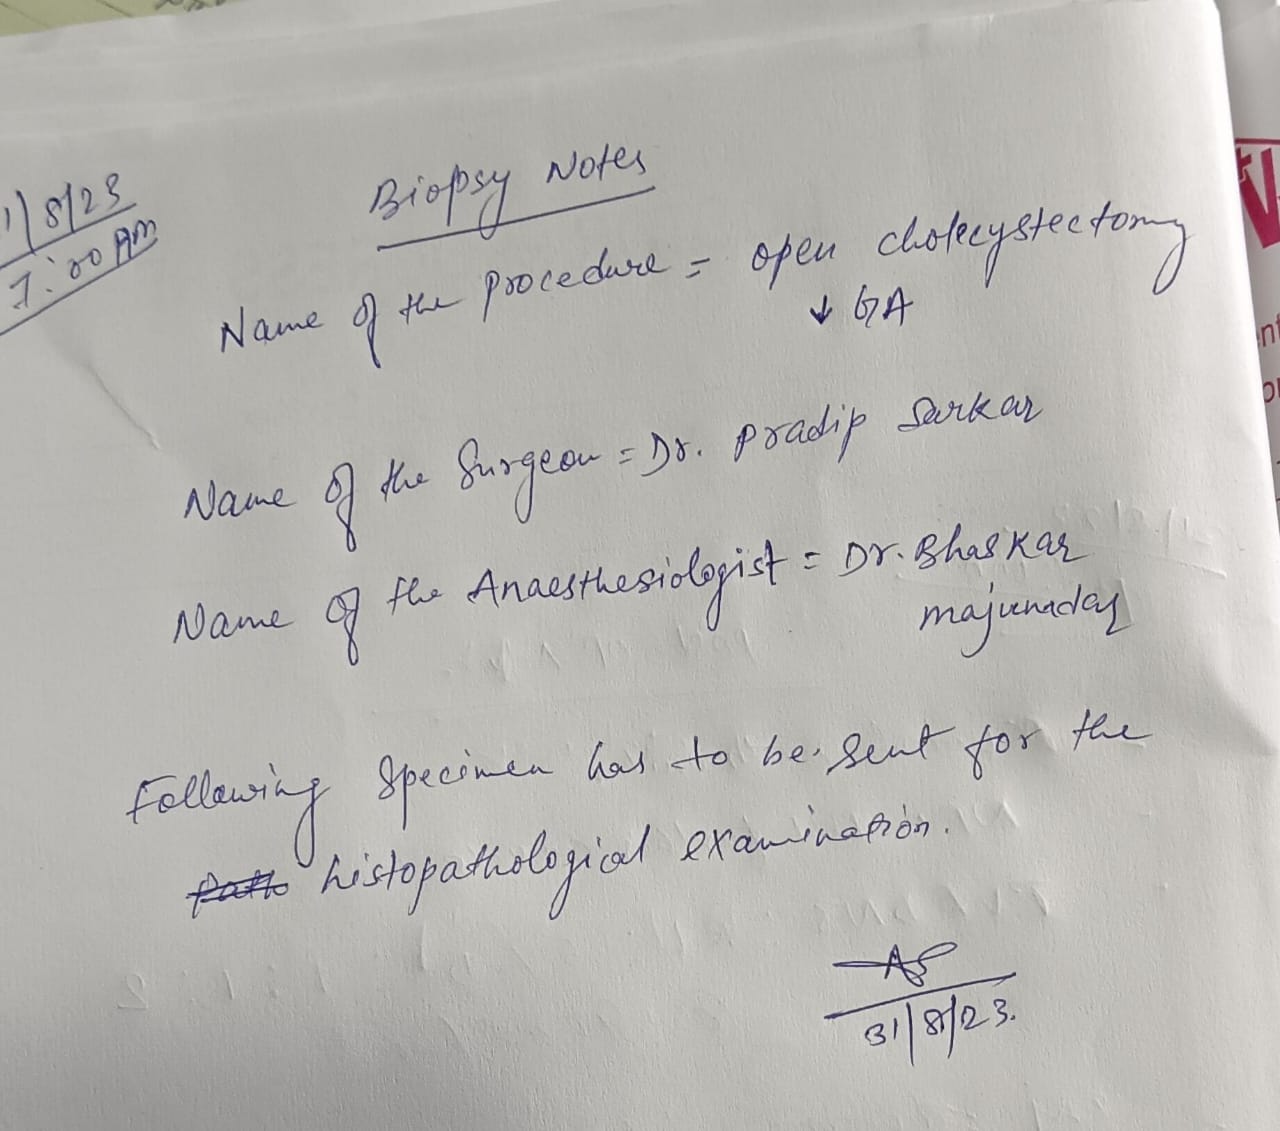 1/8/23
7:00 AM
Biopsy Notes
Name of the procedure = open cholecystectomy
↓ GA
Name of the Surgeon = Dr. Pradip Sarkar
Name of the Anaesthesiologist = Dr. Bhaskar
majumdar
Following Specimen has to be sent for the
histopathological examination.
31/8/23.